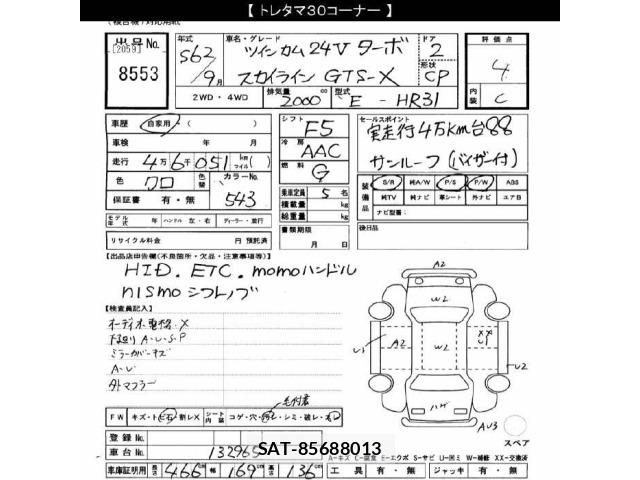 【 トレタマ30コーナー 】
(複合機)対応用紙
出品 No.
[2059]
8553
年式
S62/9月
車名・グレード
ツインカム 24V ターボ
スカイライン GTS-X
ドア
2
形状
CP
評価点
4
内装
C
2WD・4WD
排気量
2000 cc
型式
E - HR31
車歴
自家用・( )
車検 年 月
走行 4万6千051 km マイル ( )
色 クロ
色替
カラーNo.
543
保証書 有・無
シフト F5
冷房 AAC
燃料 G
乗車定員 5 名
積載量 kg
総重量 kg
書類期限
月 日
セールスポイント
実走行4万km台88
サンルーフ(バイザー付)
装備品
S/R 純A/W P/S P/W ABS
純TV 純ナビ 革シート 外ナビ エアB
ナビ型番:
モデル年式 年 ハンドル 左・右 ディーラー・並行
リサイクル料金 円 預託済
後日品
【出品店申告欄(不良箇所・欠品・注意事項等)】
HID. ETC. momoハンドル
nismo シフトノブ
【検査員記入】
オーディオ電格・X
下廻り A・U・S・P
ミラーカバーキズ
A・U
外マフラー
A2
W2
U1
A2
W2
XX
U1
U2
ハゲ
AU3
スペア
FW キズ・ト 石 割レX
シート内装 コゲ・穴・ ・シミ・破レ・
登録 No.
車台 No. 132965
SAT-85688013
A-キズ C-腐食 E-エクボ S-サビ U-凹ミ W-補修 XX-交換済
車庫証明用 長さ 466 cm 幅 169 cm 高さ 136 cm
工具 有・無 ジャッキ 有・無